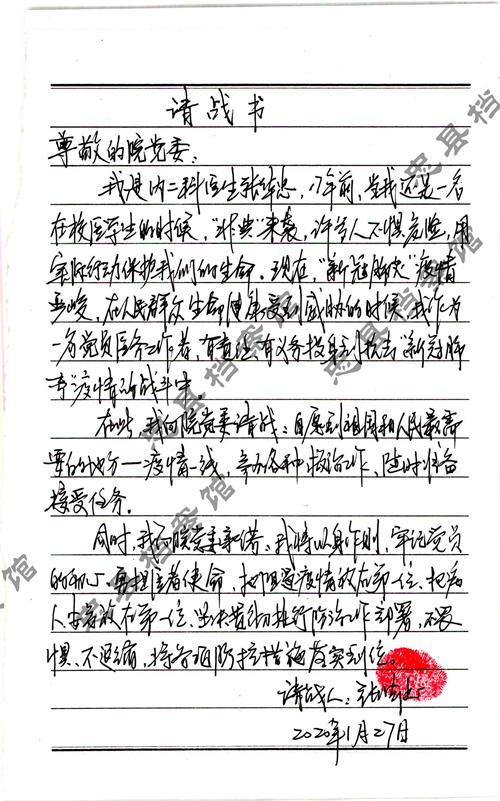 请战书
尊敬的院党委:
我是内二科医生张华忠,17年前,当我还是一名
在校医学生的时候,“非典”来袭,许多人不惧危险,用
实际行动保护我们的生命。现在,“新冠肺炎”疫情
严峻,在人民群众生命健康受到威胁的时候,我作为
一名党员医务工作者,有责任有义务投身到抗击“新冠肺
炎”疫情的战斗中。
在此,我向院党委请战:自愿到祖国和人民最需
要的地方——疫情一线,参加各种救治工作,随时准备
接受任务。
同时,我向院党委承诺,我将以身作则,牢记党员
的初心,勇担医者使命,把阻遏疫情放在第一位,把病
人安危放在第一位,坚决贯彻执行防治工作部署,不畏
惧、不退缩,将各项防控措施落实到位。
请战人:
2020年1月27日
忠县档案馆
忠县档案馆
忠县档案馆